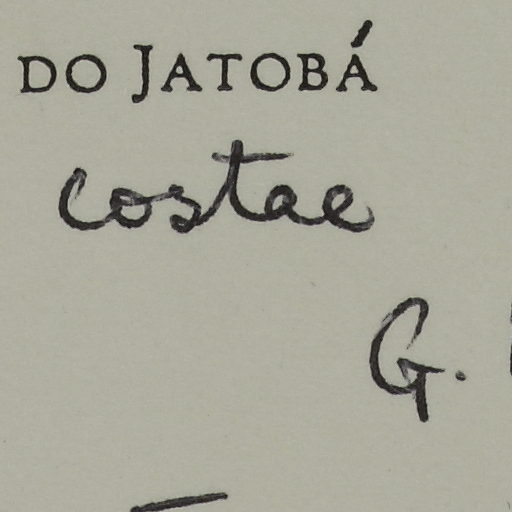 DO JATOBÁ
costae
G.